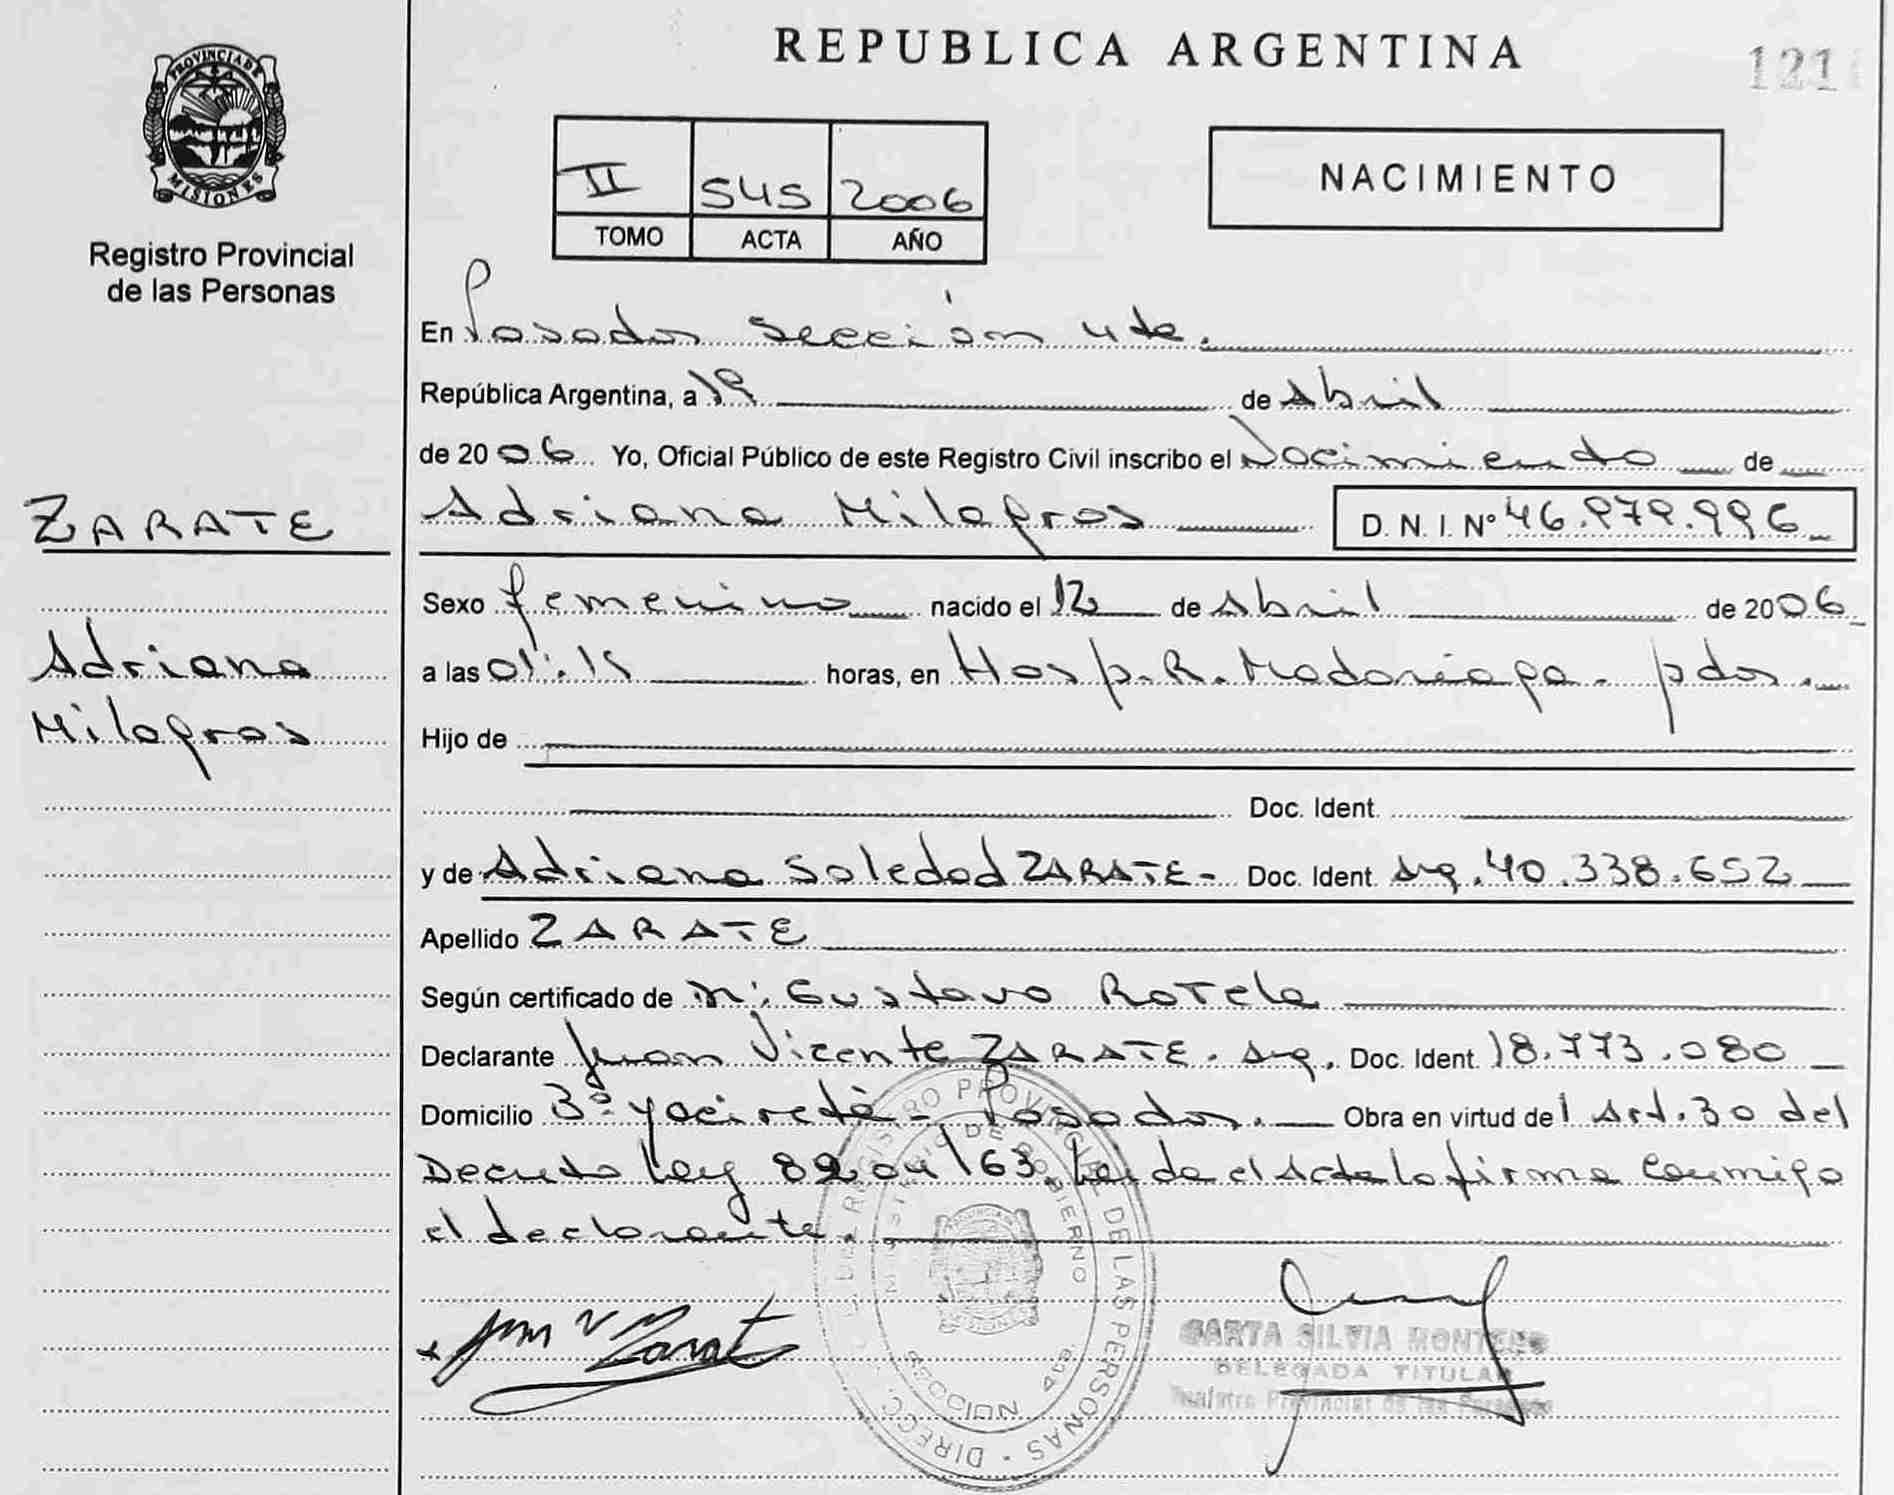 REPUBLICA ARGENTINA
121
PROVINCIA DE MISIONES
Registro Provincial
de las Personas
II 545 2006
TOMO ACTA AÑO
NACIMIENTO
En Posadas Sección 4ta.
República Argentina, a 19 de Abril
de 2006 Yo, Oficial Público de este Registro Civil inscribo el Nacimiento de
ZARATE
Adriana Milagros D. N. I. Nº 46.979.996
Sexo femenino nacido el 12 de Abril de 2006
Adriana
Milagros
a las 01:15 horas, en Hosp. R. Madariaga - pdas.
Hijo de
Doc. Ident.
y de Adriana Soledad ZARATE - Doc. Ident. Arg. 40.338.652
Apellido ZARATE
Según certificado de Gustavo Rotela
Declarante Juan Vicente ZARATE. Arg. Doc. Ident. 18.773.080
Domicilio 3º yacireta - Posadas. Obra en virtud del Art. 30 del
Decreto Ley 8204/63. Leída el Acta la firma conmigo
el declarante.
DIRECC. REGISTRO PROVINCIAL DE LAS PERSONAS
MINISTERIO DE GOBIERNO
MISIONES
SECCION 4ta
Juan V Zarat
SILVIA
DELEGADA TITULAR
Registro Provincial de las Personas